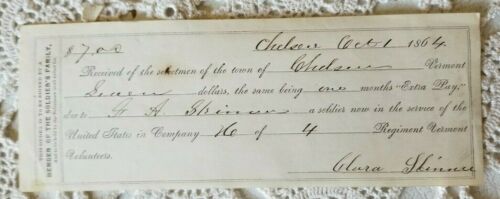 THIS ORDER IS TO BE SIGNED BY A
MEMBER OF THE SOLDIER'S FAMILY,
$7.00 Chelsea Oct 1 1864
Received of the selectmen of the town of Chelsea Vermont
Seven dollars, the same being one months "Extra Pay,"
due to H. A. Skinner a soldier now in the service of the
United States in Company H of 4 Regiment Vermont
Volunteers.
Clara Skinner